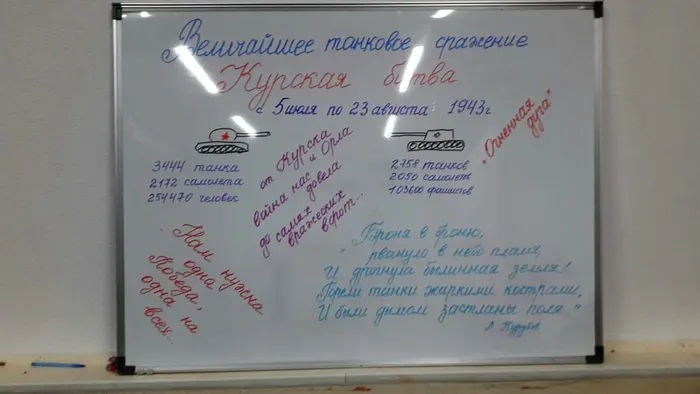 Величайшее танковое сражение
Курская битва
с 5 июля по 23 августа 1943г
"Огненная
дуга"
3444 танка
2172 самолета
254470 человек
от Курска
и Орла
война нас
довела
до самых
вражеских
ворот...
2758 танков
2050 самолеты
103600 фашистов
Нам нужна
одна
Победа,
одна на
всех...
"Броня в броню,
рвануло в небо пламя,
И дрогнула былинная земля!
Горели танки жаркими кострами,
И были дымом застланы поля."